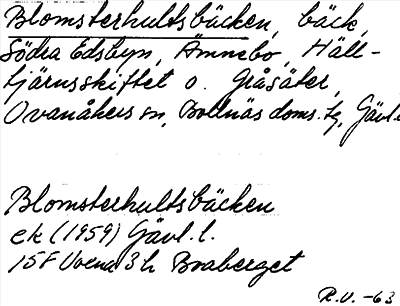 Blomsterhultsbäcken, bäck,
Södra Edsbyn, Ämnebo, Häll-
tjärnsskiftet o. Gråsäter,
Ovanåkers sn, Bollnäs doms. tg, Gävl.
Blomsterhultsbäcken
ek (1959) Gävl. l.
15F Voxna 3h Braberget
R.U. -63